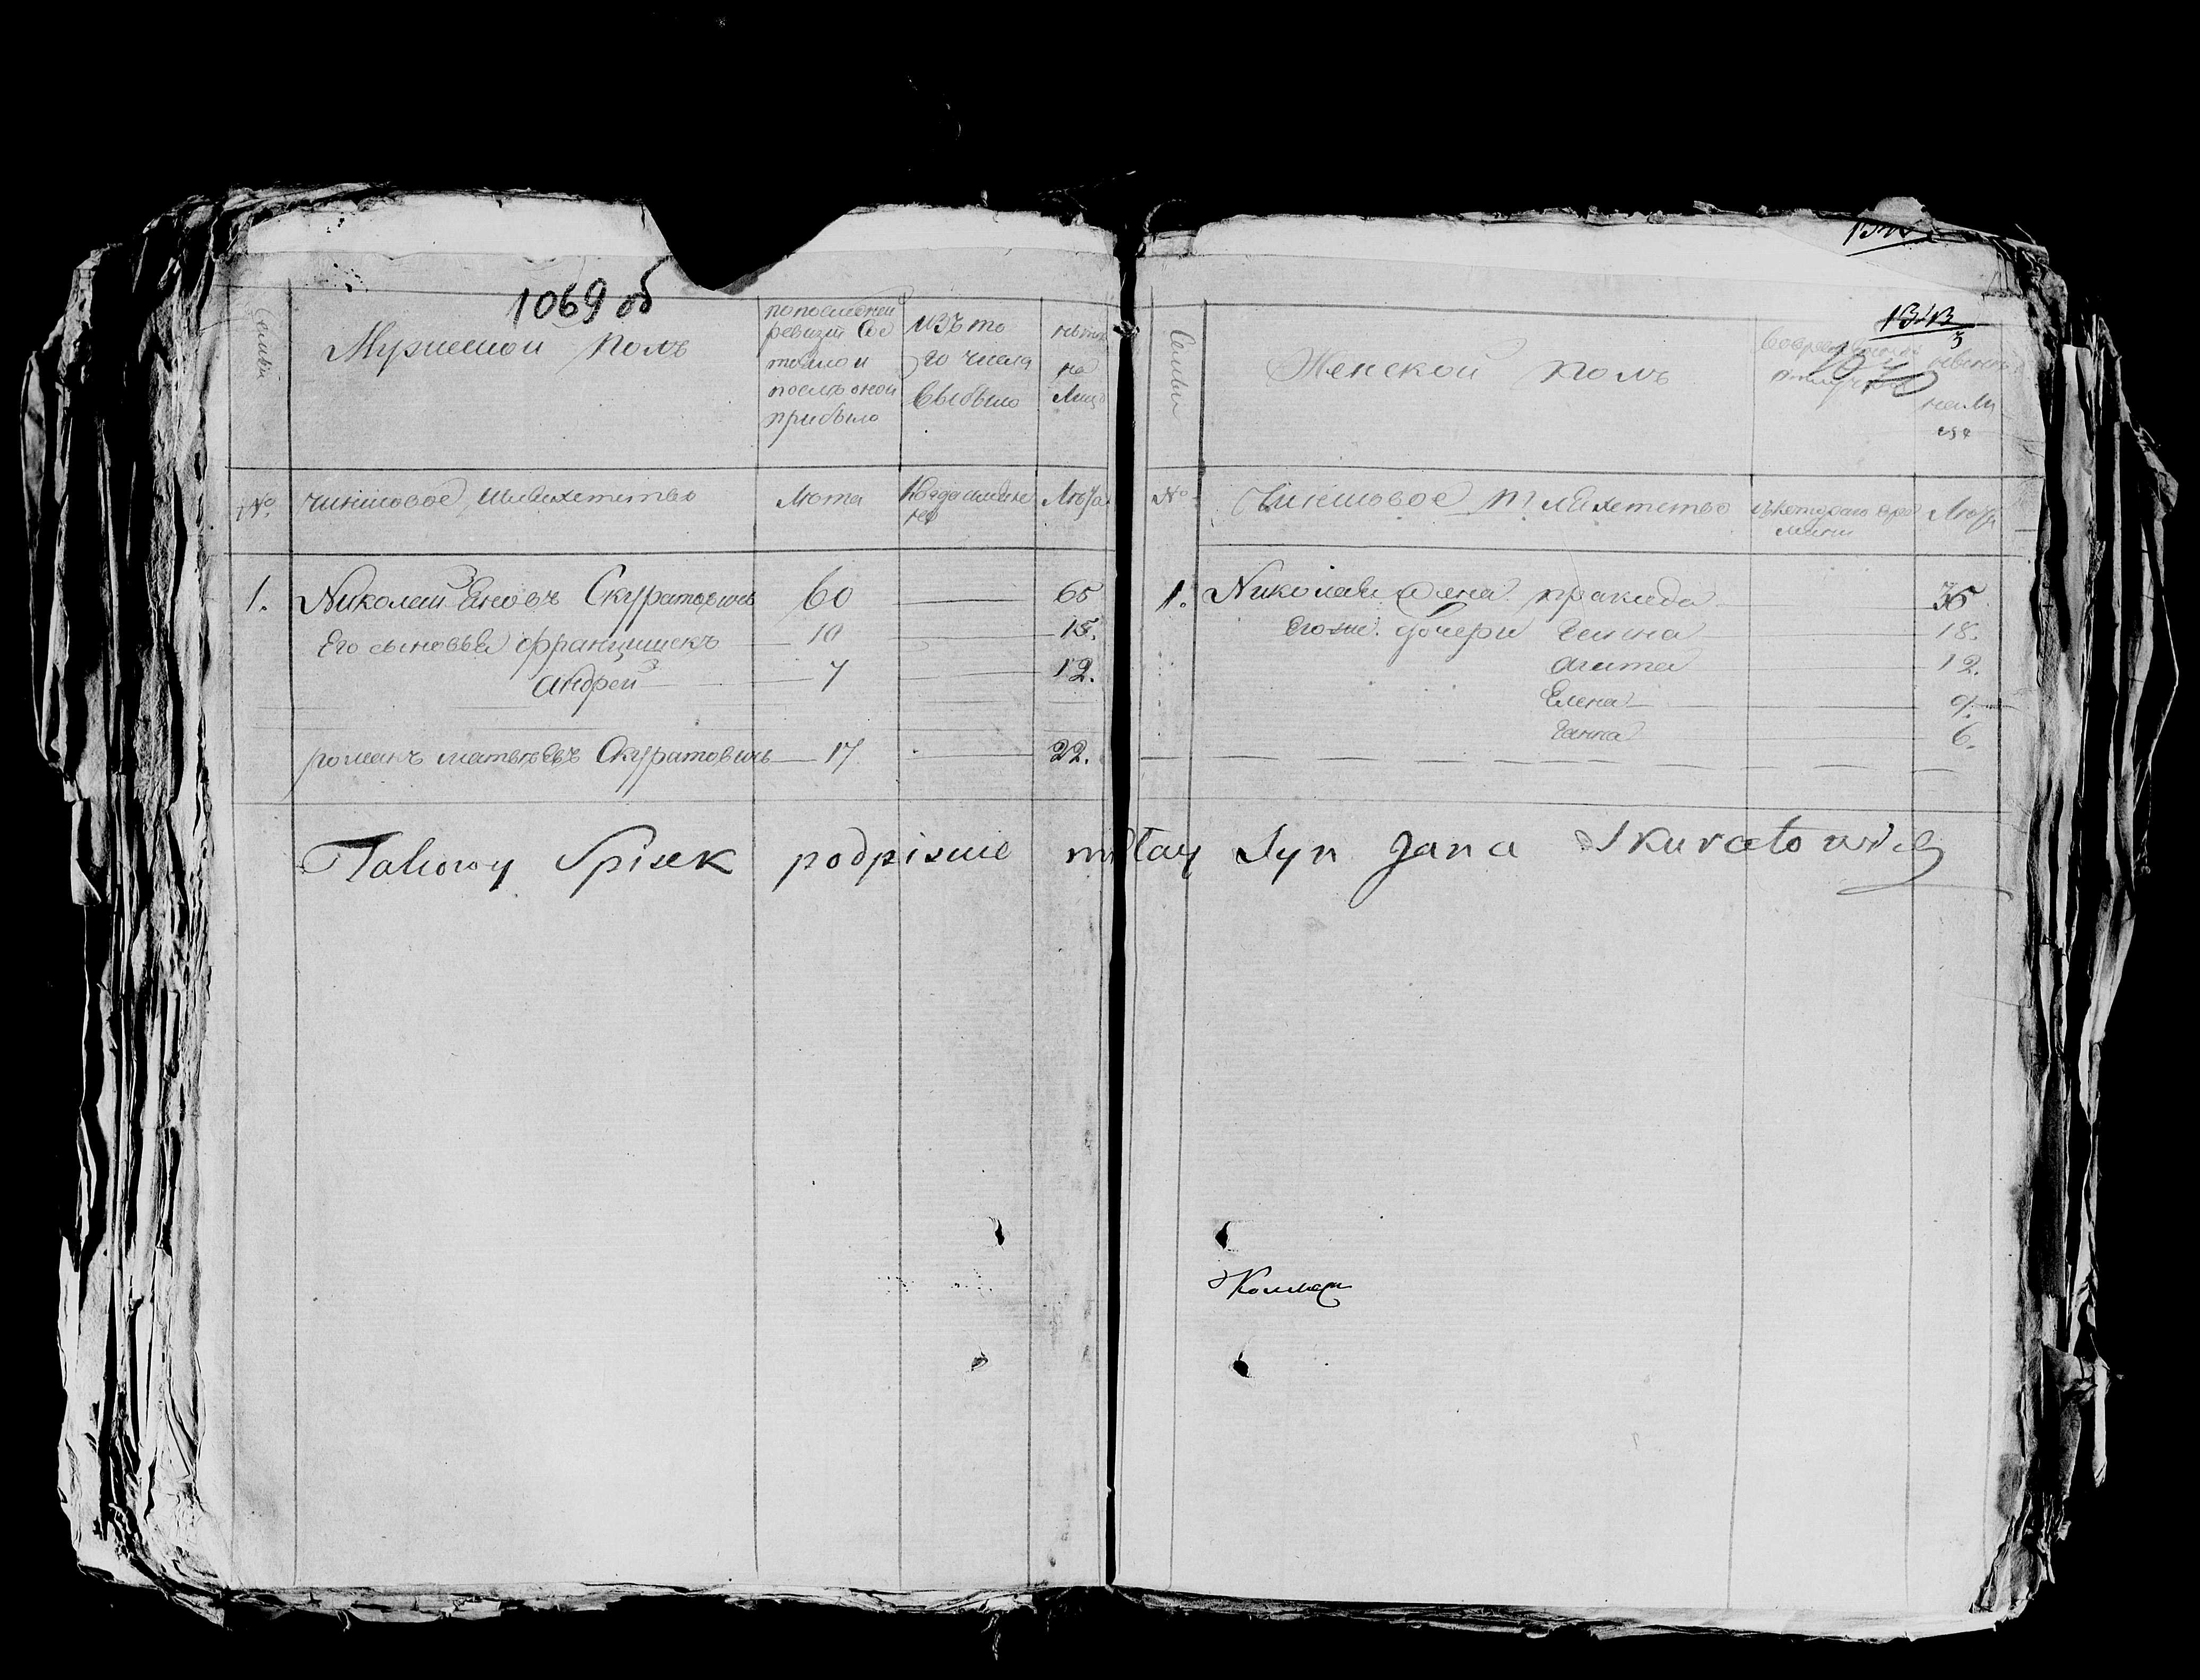 1069 об
Семьи
Мужеской Полъ
по последней
ревизіи Сос
тояло и
после оной
прибыло
изъ то
го числа
Выбыло
ныне
на
Лицо
№
чиншовое шляхетство
Лета
Когда имянно
Лета
1. Николай Яновъ Скуратовичъ 60 65
Его сыновья францишекъ 10 15.
Андрей 7 12.
романъ матвеевъ Скуратовичъ 17 22.
1343
Семьи
Женской полъ
ныне
на ли
це
№
Чиншовое Шляхетство
съ котораго вре
мени
Лета
1. Николая жена пракседа 35
Его же дочери 18.
Агата 12.
Елена 9.
Ганна 6.
Takowy Spisek podpisuie mkłay Syn Jana Skuratowicz
Коллеж